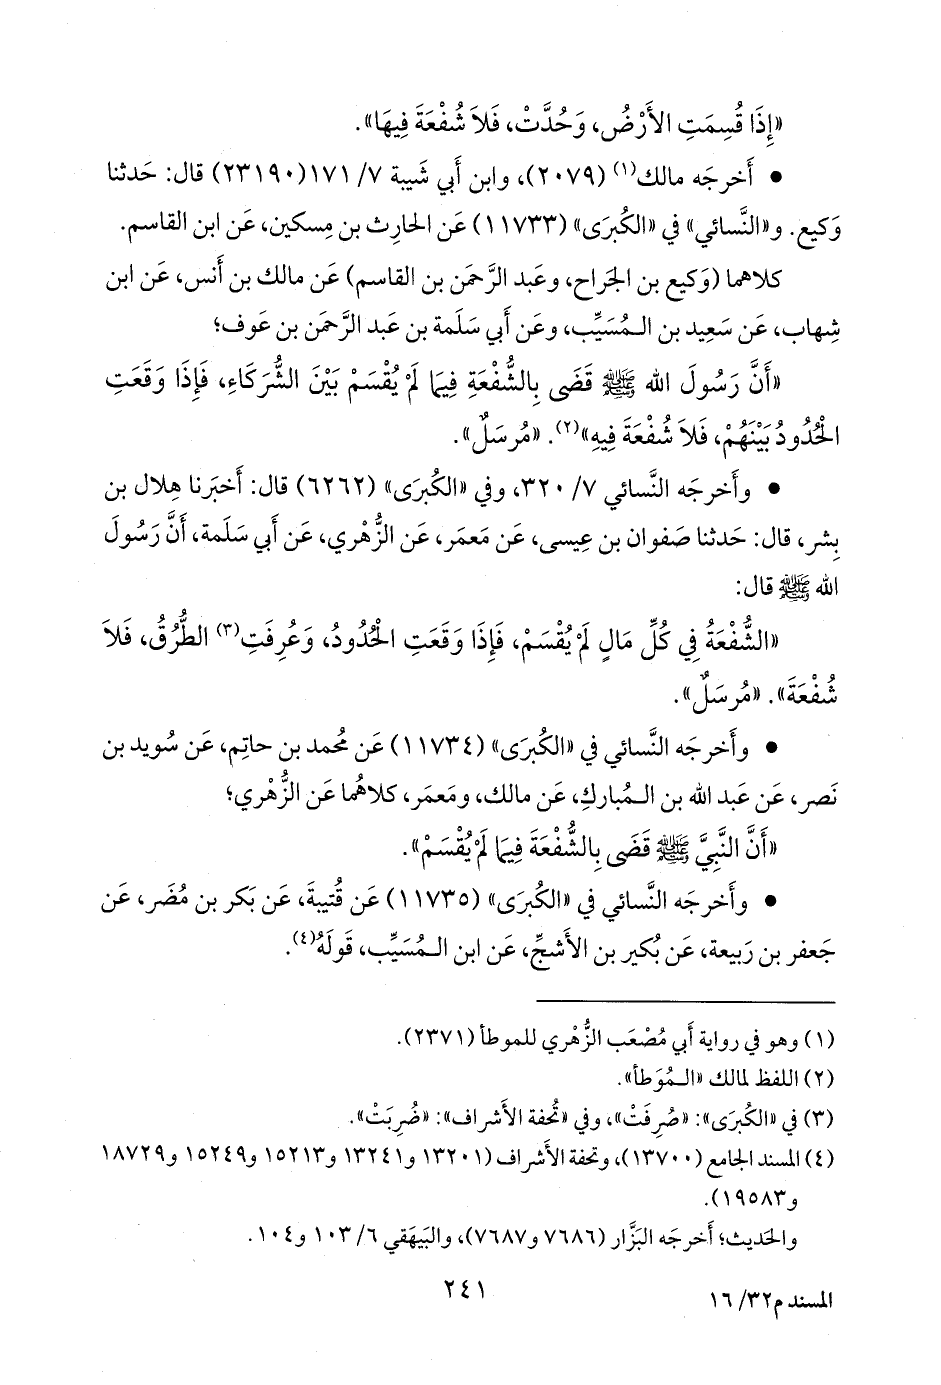 «إِذَا قُسِمَتِ الأَرْضُ، وَحُدَّتْ، فَلاَ شُفْعَةَ فِيهَا».
• أَخرجَه مالك(١) (٢٠٧٩)، وابن أَبي شَيبة ٧/ ١٧١(٢٣١٩٠) قال: حَدثنا
وَكيع. و«النَّسائي» في «الكُبرَى» (١١٧٣٣) عَن الحارِث بن مِسكين، عَن ابن القاسم.
كلاهما (وَكيع بن الجَراح، وعَبد الرَّحمَن بن القاسم) عَن مالك بن أَنس، عَن ابن
شِهاب، عَن سَعِيد بن الـمُسَيِّب، وعَن أَبي سَلَمة بن عَبد الرَّحمَن بن عَوف؛
«أَنَّ رَسُولَ الله ﷺ قَضَى بِالشُّفْعَةِ فِيمَا لَمْ يُقْسَمْ بَيْنَ الشُّرَكَاءِ، فَإِذَا وَقَعَتِ
الْحُدُودُ بَيْنَهُمْ، فَلاَ شُفْعَةَ فِيهِ»(٢). «مُرسَلٌ».
• وأَخرجَه النَّسائي ٧/ ٣٢٠، وفي «الكُبرَى» (٦٢٦٢) قال: أَخبَرنا هِلال بن
بِشر، قال: حَدثنا صَفوان بن عِيسى، عَن مَعمَر، عَن الزُّهْري، عَن أَبي سَلَمة، أَنَّ رَسُولَ
الله ﷺ قال:
«الشُّفْعَةُ فِي كُلِّ مَالٍ لَمْ يُقْسَمْ، فَإِذَا وَقَعَتِ الْحُدُودُ، وَعُرِفَتِ(٣) الطُّرُقُ، فَلاَ
شُفْعَةَ». «مُرسَلٌ».
• وأَخرجَه النَّسائي في «الكُبرَى» (١١٧٣٤) عَن مُحمد بن حاتِم، عَن سُويد بن
نَصر، عَن عَبد الله بن الـمُبارك، عَن مالك، ومَعمَر، كلاهُما عَن الزُّهْري؛
«أَنَّ النَّبِيَّ ﷺ قَضَى بِالشُّفْعَةَ فِيمَا لَمْ يُقْسَمْ».
• وأَخرجَه النَّسائي في «الكُبرَى» (١١٧٣٥) عَن قُتيبةَ، عَن بَكر بن مُضَر، عَن
جَعفر بن رَبيعة، عَن بُكير بن الأَشجِّ، عَن ابن الـمُسَيِّب، قَولَهُ(٤).
(١) وهو في رواية أَبي مُصْعَب الزُّهْري للموطأ (٢٣٧١).
(٢) اللفظ لمالك «الـمُوَطأ».
(٣) في «الكُبرَى»: «صُرِفَتْ»، وفي «تُحفة الأَشراف»: «ضُرِبَتْ».
(٤) المسند الجامع (١٣٧٠٠)، وتحفة الأَشراف (١٣٢٠١ و١٣٢٤١ و١٥٢١٣ و١٥٢٤٩ و١٨٧٢٩
و١٩٥٨٣).
والحَديث؛ أَخرجَه البَزَّار (٧٦٨٦ و٧٦٨٧)، والبَيهَقي ٦/ ١٠٣ و١٠٤.
٢٤١
المسند م٣٢/ ١٦